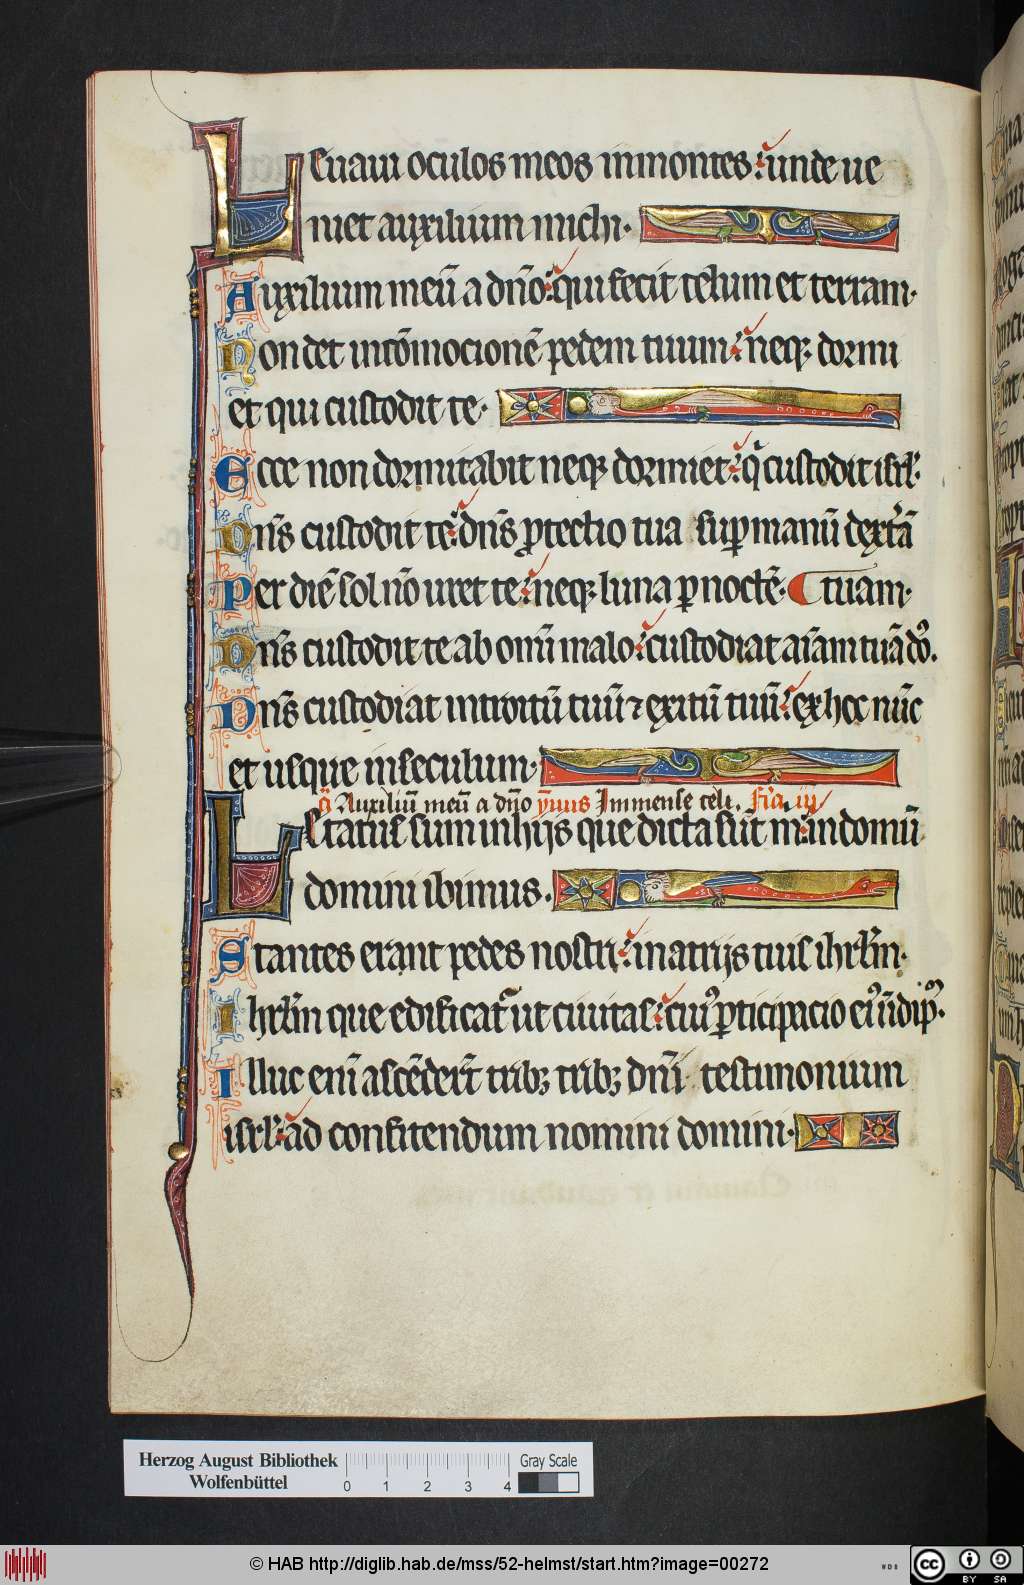 Leuaui oculos meos in montes: unde ue
niet auxilium michi.
Auxilium meū a dn̄o: qui fecit celum et terram.
Non det in cōmocionē pedem tuum: neqꝫ dormi
et qui custodit te.
Ecce non dormitabit neqꝫ dormiet: qͥ custodit isrl̄.
Dn̄s custodit te: dn̄s ꝓtectio tua sup manū dextᷓā
Per diē sol nō uret te: neqꝫ luna ꝑ noctē. tuam.
Dn̄s custodit te ab om̄i malo: custodiat aīam tuā do᷒.
Dn̄s custodiat introitū tuū ⁊ exitū tuū: ex hoc nūc
et usque in seculum.
aᷓ Auxiliū meū a dn̄o ym̄us Immense celi. Fīa iij
Letatus sum in hijs que dicta sūt m̄: in domū
domini ibimus.
Stantes erant pedes nostri: in atrijs tuis ihrl̄m.
Ihrl̄m que edificat᷒ ut ciuitas: cui᷒ ꝑticipacio ei᷒ ī idip̄.
Illuc enī ascēder̄t tribꝫ tribꝫ dn̄i testimonium
isrl̄: ad confitendum nomini domini.
Herzog August Bibliothek
Wolfenbüttel
0 1 2 3 4
Gray Scale
© HAB http://diglib.hab.de/mss/52-helmst/start.htm?image=00272
WDB
cc BY SA